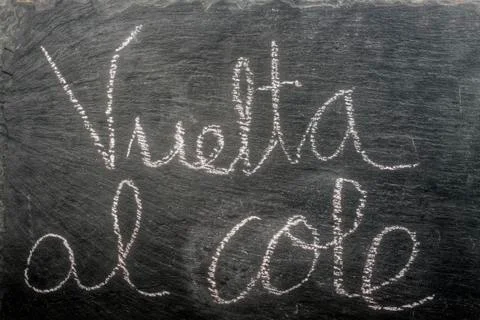 Vuelta
al cole